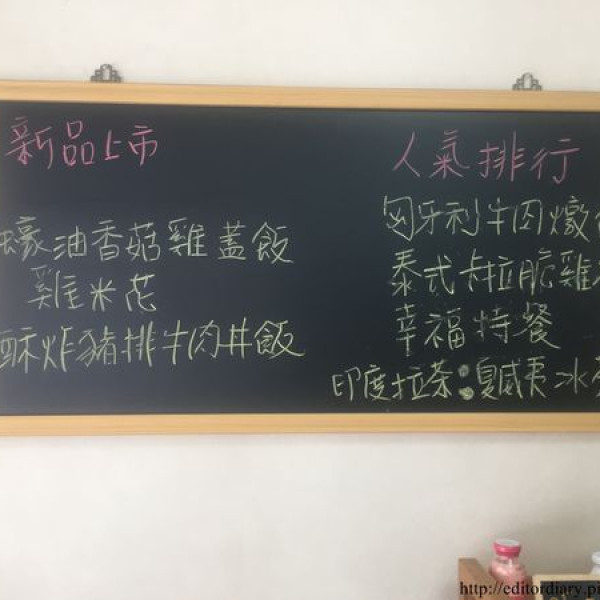 新品上市
蠔油香菇雞蓋飯
雞米花
酥炸豬排牛肉丼飯
人氣排行
匈牙利牛肉燉
泰式卡拉脆雞
幸福特餐
印度拉茶:夏威夷冰
http://editordiary.pi